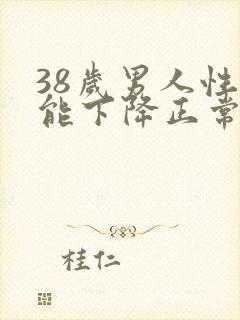 38歲男人性
能下降正常
桂仁